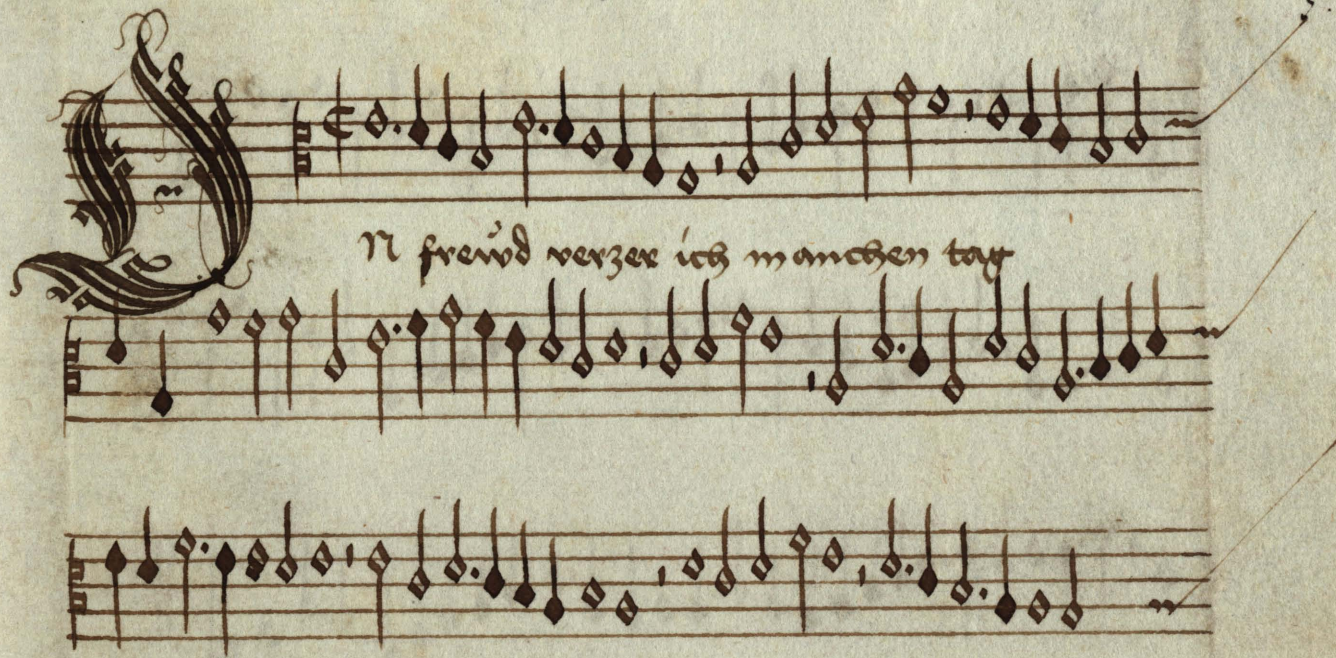 IN freẅd verzer ich manchen tag